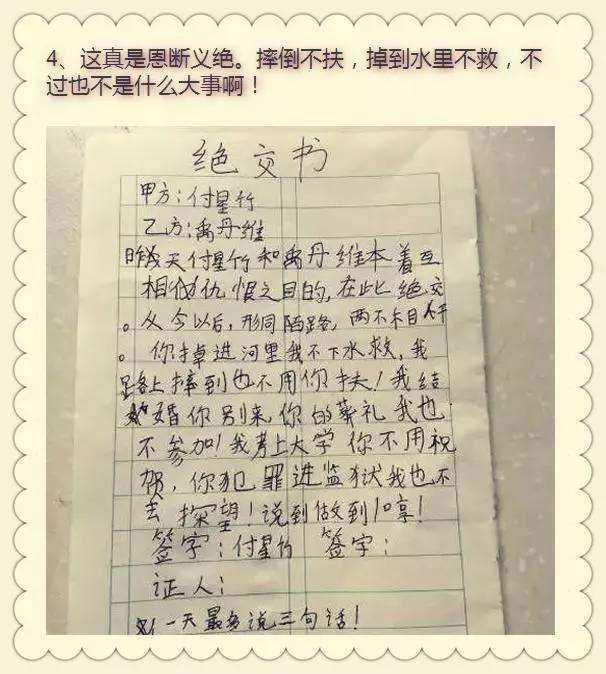 4、这真是恩断义绝。摔倒不扶，掉到水里不救，不
过也不是什么大事啊！
绝交书
甲方：付星竹
乙方：禹丹维
昨天付星竹和禹丹维本着互
相仇恨之目的，在此绝交
。从今以后，形同陌路，两不相干
。你掉进河里我不下水救，我
路上摔到也不用你扶！我结
婚你别来，你的葬礼我也
不参加！我考上大学你不用祝
贺，你犯罪进监狱我也不
去探望！说到做到！哼！
签字：付星竹 签字：
证人：
一天最多说三句话！